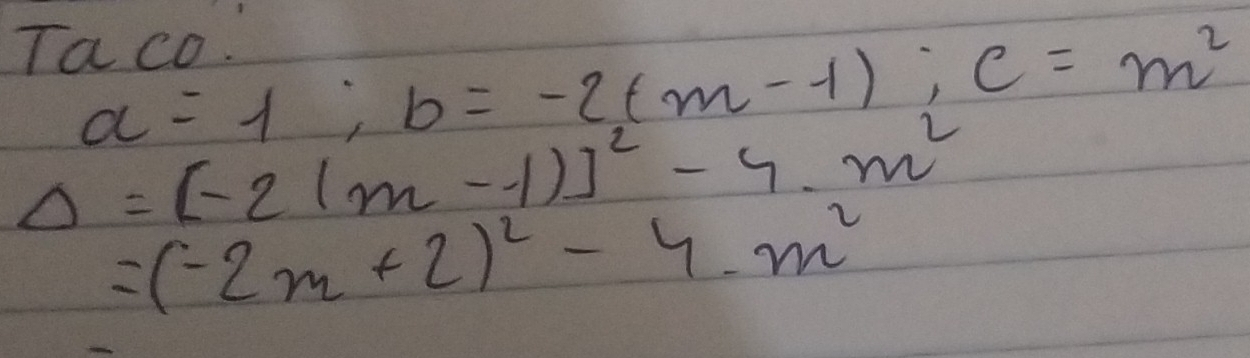 Ta có:
a = 1 ; b = -2(m-1) ; c = m²
Δ = [-2(m-1)]² - 4.m²
=(-2m+2)² - 4.m²
=